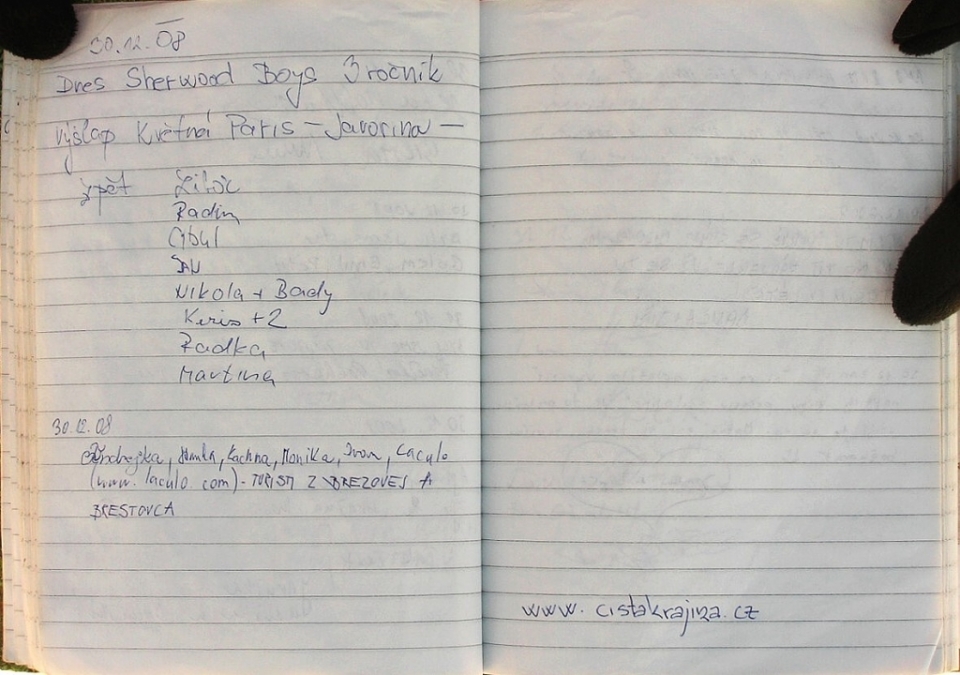 30.12.08
Dnes Sherwood Boys 3 ročník
výšlap Květná Paris - Javorina -
zpět
Radim
Cibul
Nikola + Bady
Keris + 2
Radka
Martina
30.12.08
Ondrejka, Hanka, Kachna, Monika, Ivan, Laculo
(www.laculo.com) - TURISTI Z BREZOVEJ A
BRESTOVCA
www.cistakrajina.cz